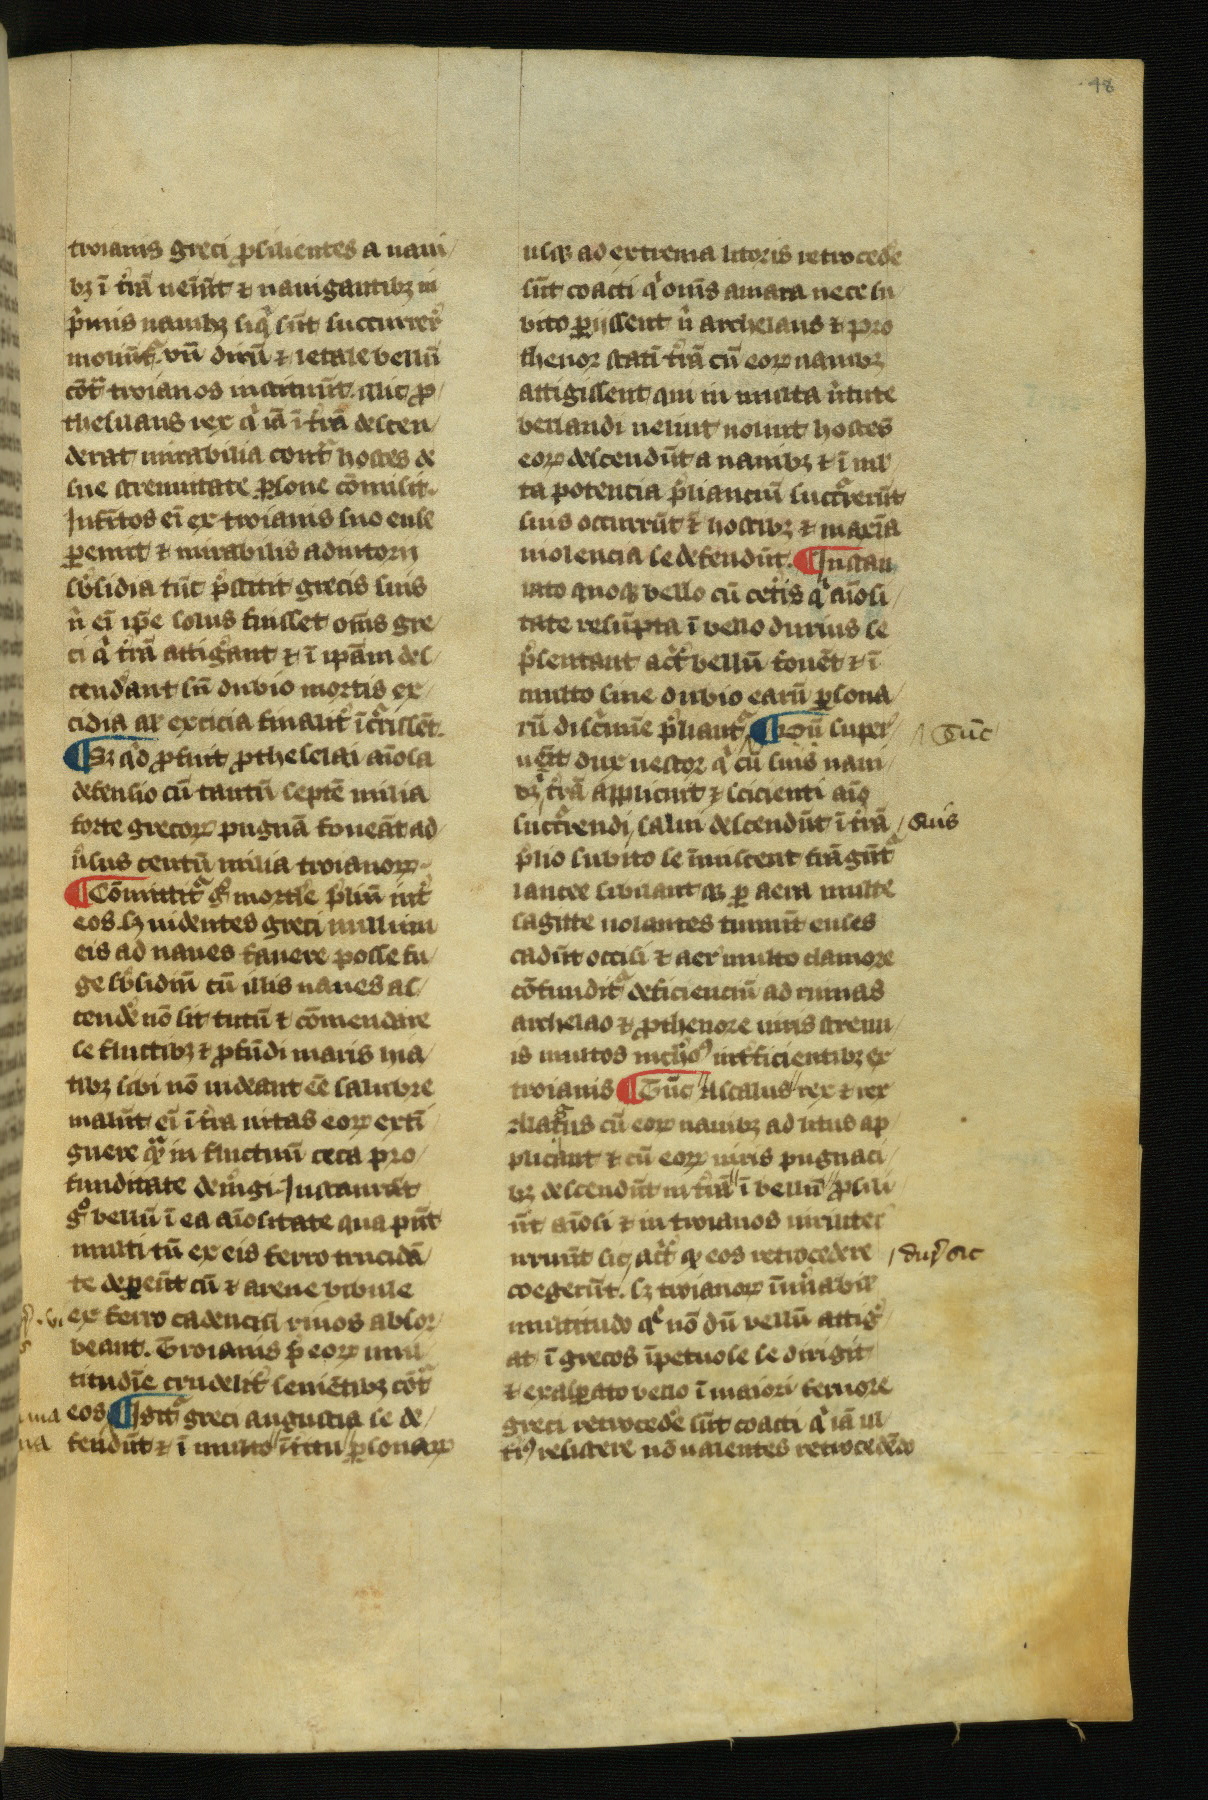 48
troianis greci ꝓsilientes a naui
bꝫ ī t̄rā ueīūt ⁊ nauigantibꝫ in
p̄mis nauibꝫ siq̇ sūt succurrer̄
mouūt᷑. vn̄ dirū ⁊ letale bellū
cōt᷑ troianos ineunt. illic ꝓ
thesilaus rex q̇ iā ī t̄rā descen
derat mirabilia cont᷑ hostes de
sue strenuitate ꝑsone cōmisit.
Infītos ei̅ ex troianis suo ense
ꝑemit ⁊ mirabilis adiutorii
sb̄sidia tūc p̄stitit grecis suis
n̄ ei̅ ip̄e solus fuisset om̄s gre
ci q̇ t̄rā attig̓ant ⁊ ī ip̄am des
cend̓ant sn̄ dubio mortis ex
cidia ac exicia finalit̓ īc̓rissēt.
¶ Sꝫ qd̓ ꝓfuit ꝓtheselai aīosa
defensio cū tantū septē milia
forte grecoꝝ pugnā foueāt ad
ūsus centū milia troianoꝝ.
¶ Cōmittit᷑ g̊ mortale p̄liū int̓
eos. sꝫ uidentes greci nullum
eis ad naues fauere posse fu
ge sb̄sidiū cū illis naues as
cend̓e nō sit tutū ⁊ cōmendare
se fluctibꝫ ⁊ ꝓfūdi maris ma
tibꝫ sibi nō uideant eē salubre
malūt ei̅ ī t̄ra uitas eoꝝ extī
guere qᷓ in fluctuū ceca pro
funditate dem̓gi. Instaurāt
g̊ bellū ī ea aīositate qua pn̄t
multi tn̄ ex eis ferro trucidā
te deꝑeūt cū ⁊ arene bibule
ex ferro cadencisi riuos absor
beant. Troianis p̄ eoꝝ mul
titudīe crudelit̓ seuiētibꝫ cōt᷑
eos ¶ Igit᷑ greci angustia se de
fendūt ⁊ ī multo īt̓itu ꝑsonaꝝ
usqꝫ ad extrema litoris retroced̓e
sūt coacti q̇ om̄s amara nece su
bito ꝑiissent n̄ archelaus ⁊ pro
thenor stati̅ t̄rā cū eoꝝ nauibꝫ
attigissent qui in multa ūtute
bellandi uelint nolint hostes
eoꝝ descendūt a nauibꝫ ⁊ ī ml̓
ta potencia p̄lianciū succ̓rerūt
suis occurrūt ⁊ hostibꝫ ⁊ maxīa
uiolencia se defendūt. ¶ Instau
rato quoqꝫ bello cū cet̓is q̇ aīosi
tate resūpta ī bello durius se
p̄sentant act̓ bellū fouēt ⁊ ī
multo sine dubio earū ꝑsona
rū disc̓mīe p̄liant᷑ ¶ Dū super Tūc
uēīt dux nestor q̇ cū suis naui
bꝫ t̄rā applicuit ⁊ scicienti aīo
succ̓rendi salui descendūt ī t̄rā suis
p̄lio subito se īmiscent frāgūt᷑
lancee sibilant qꝫ ꝑ aera multe
sagitte uolantes tinniūt enses
cadūt occisi ⁊ aer multo clamore
cōfundit᷑ deficienciū ad ruinas
archelao ⁊ ꝓthenore uiris strenu
is multos int̓ficientibꝫ ex
troianis ¶ Tūc Ascalus rex ⁊ rex
cū eoꝝ nauibꝫ ad litus ap
plicant ⁊ cū eoꝝ uiris pugnaci
bꝫ descendūt in t̄rā ī bellū ꝓsili
ūt aīosi ⁊ in troianos uiriliter
irruūt sic act̓ qꝫ eos retrocedere duꝝ sic
coegerūt. sꝫ troianoꝝ īnūabil̓
multitudo q̄ nō dū bellū attig̓
at ī grecos īpetuose se dirigit
⁊ exasꝑato bello ī maiori feruore
greci retroced̓e sūt coacti q̇ iā ul
t̓i᷒ resistere nō ualentes retrocedēdo